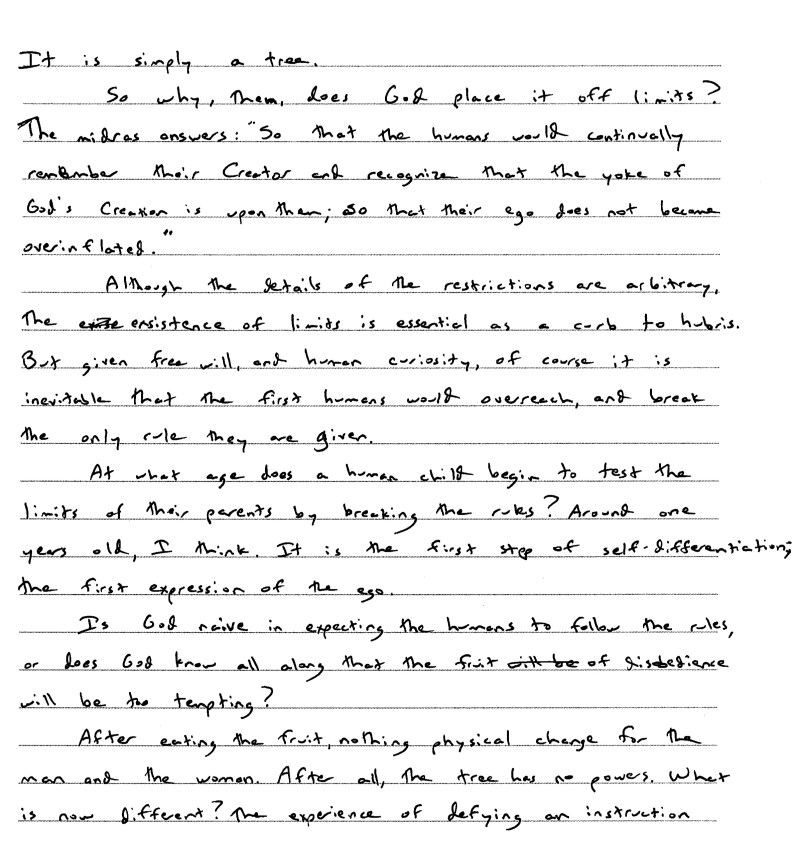 It is simply a tree.
So why, them, does God place it off limits?
The midras answers: "So that the humans would continually
remember their Creator and recognize that the yoke of
God's Creation is upon them; so that their ego does not become
overinflated."
Although the details of the restrictions are arbitrary,
the ensistence of limits is essential as a curb to hubris.
But given free will, and human curiosity, of course it is
inevitable that the first humans would overreach, and break
the only rule they are given.
At what age does a human child begin to test the
limits of their parents by breaking the rules? Around one
years old, I think. It is the first step of self-differentiation;
the first expression of the ego.
Is God naive in expecting the humans to follow the rules,
or does God know all along that the fruit will be of disobedience
will be too tempting?
After eating the fruit, nothing physical change for the
man and the woman. After all, the tree has no powers. What
is now different? The experience of defying an instruction